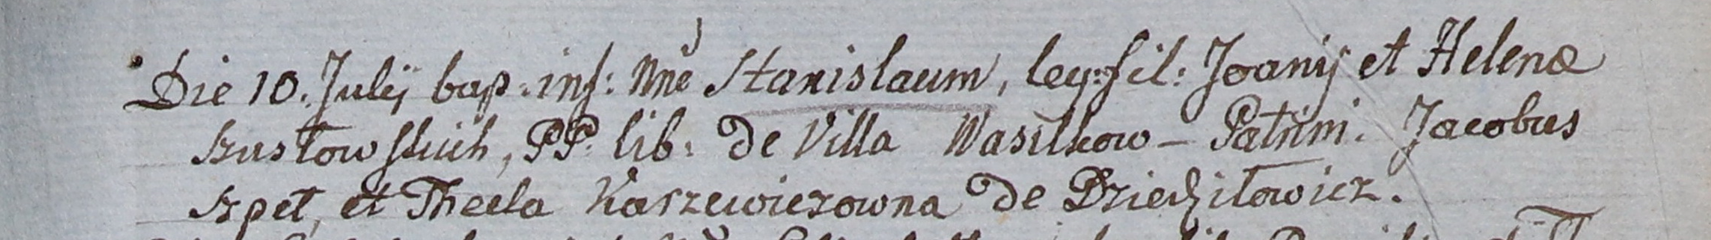 Die 10. Julij bap. inf: nne Stanislaum, leg: fil: Joanij et Helenæ
Szustowskich, PP. lib: de Villa Wasilkow – Patrini. Jacobus
Szpet, et Thecla Karzewiczowna de Dziedziłowicz.